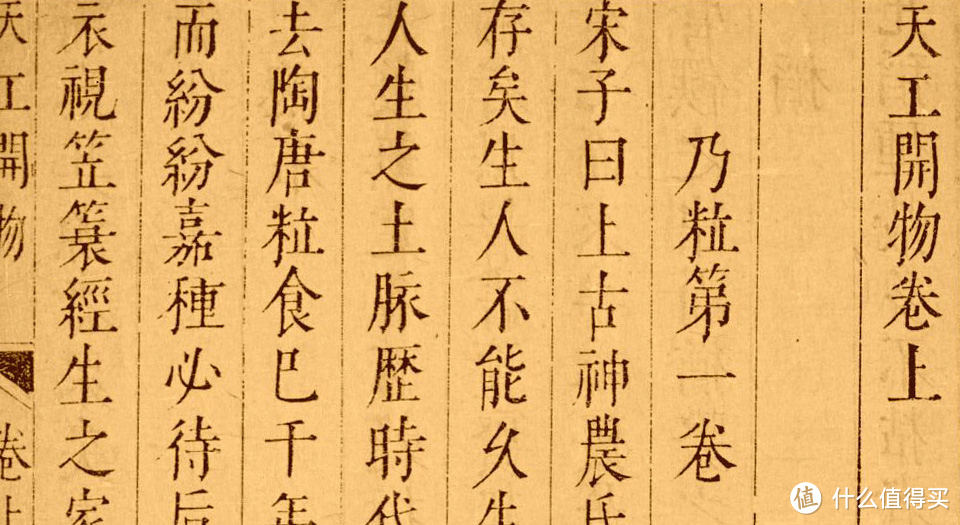 天工開物卷上
乃粒第一卷
宋子曰上古神農氏
存矣生人不能久生
人生之土脉歴時代
去陶唐粒食巳千年
而紛紛嘉種必待后
衣視笠簑經生之家
天工開物
卷上
值 什么值得买